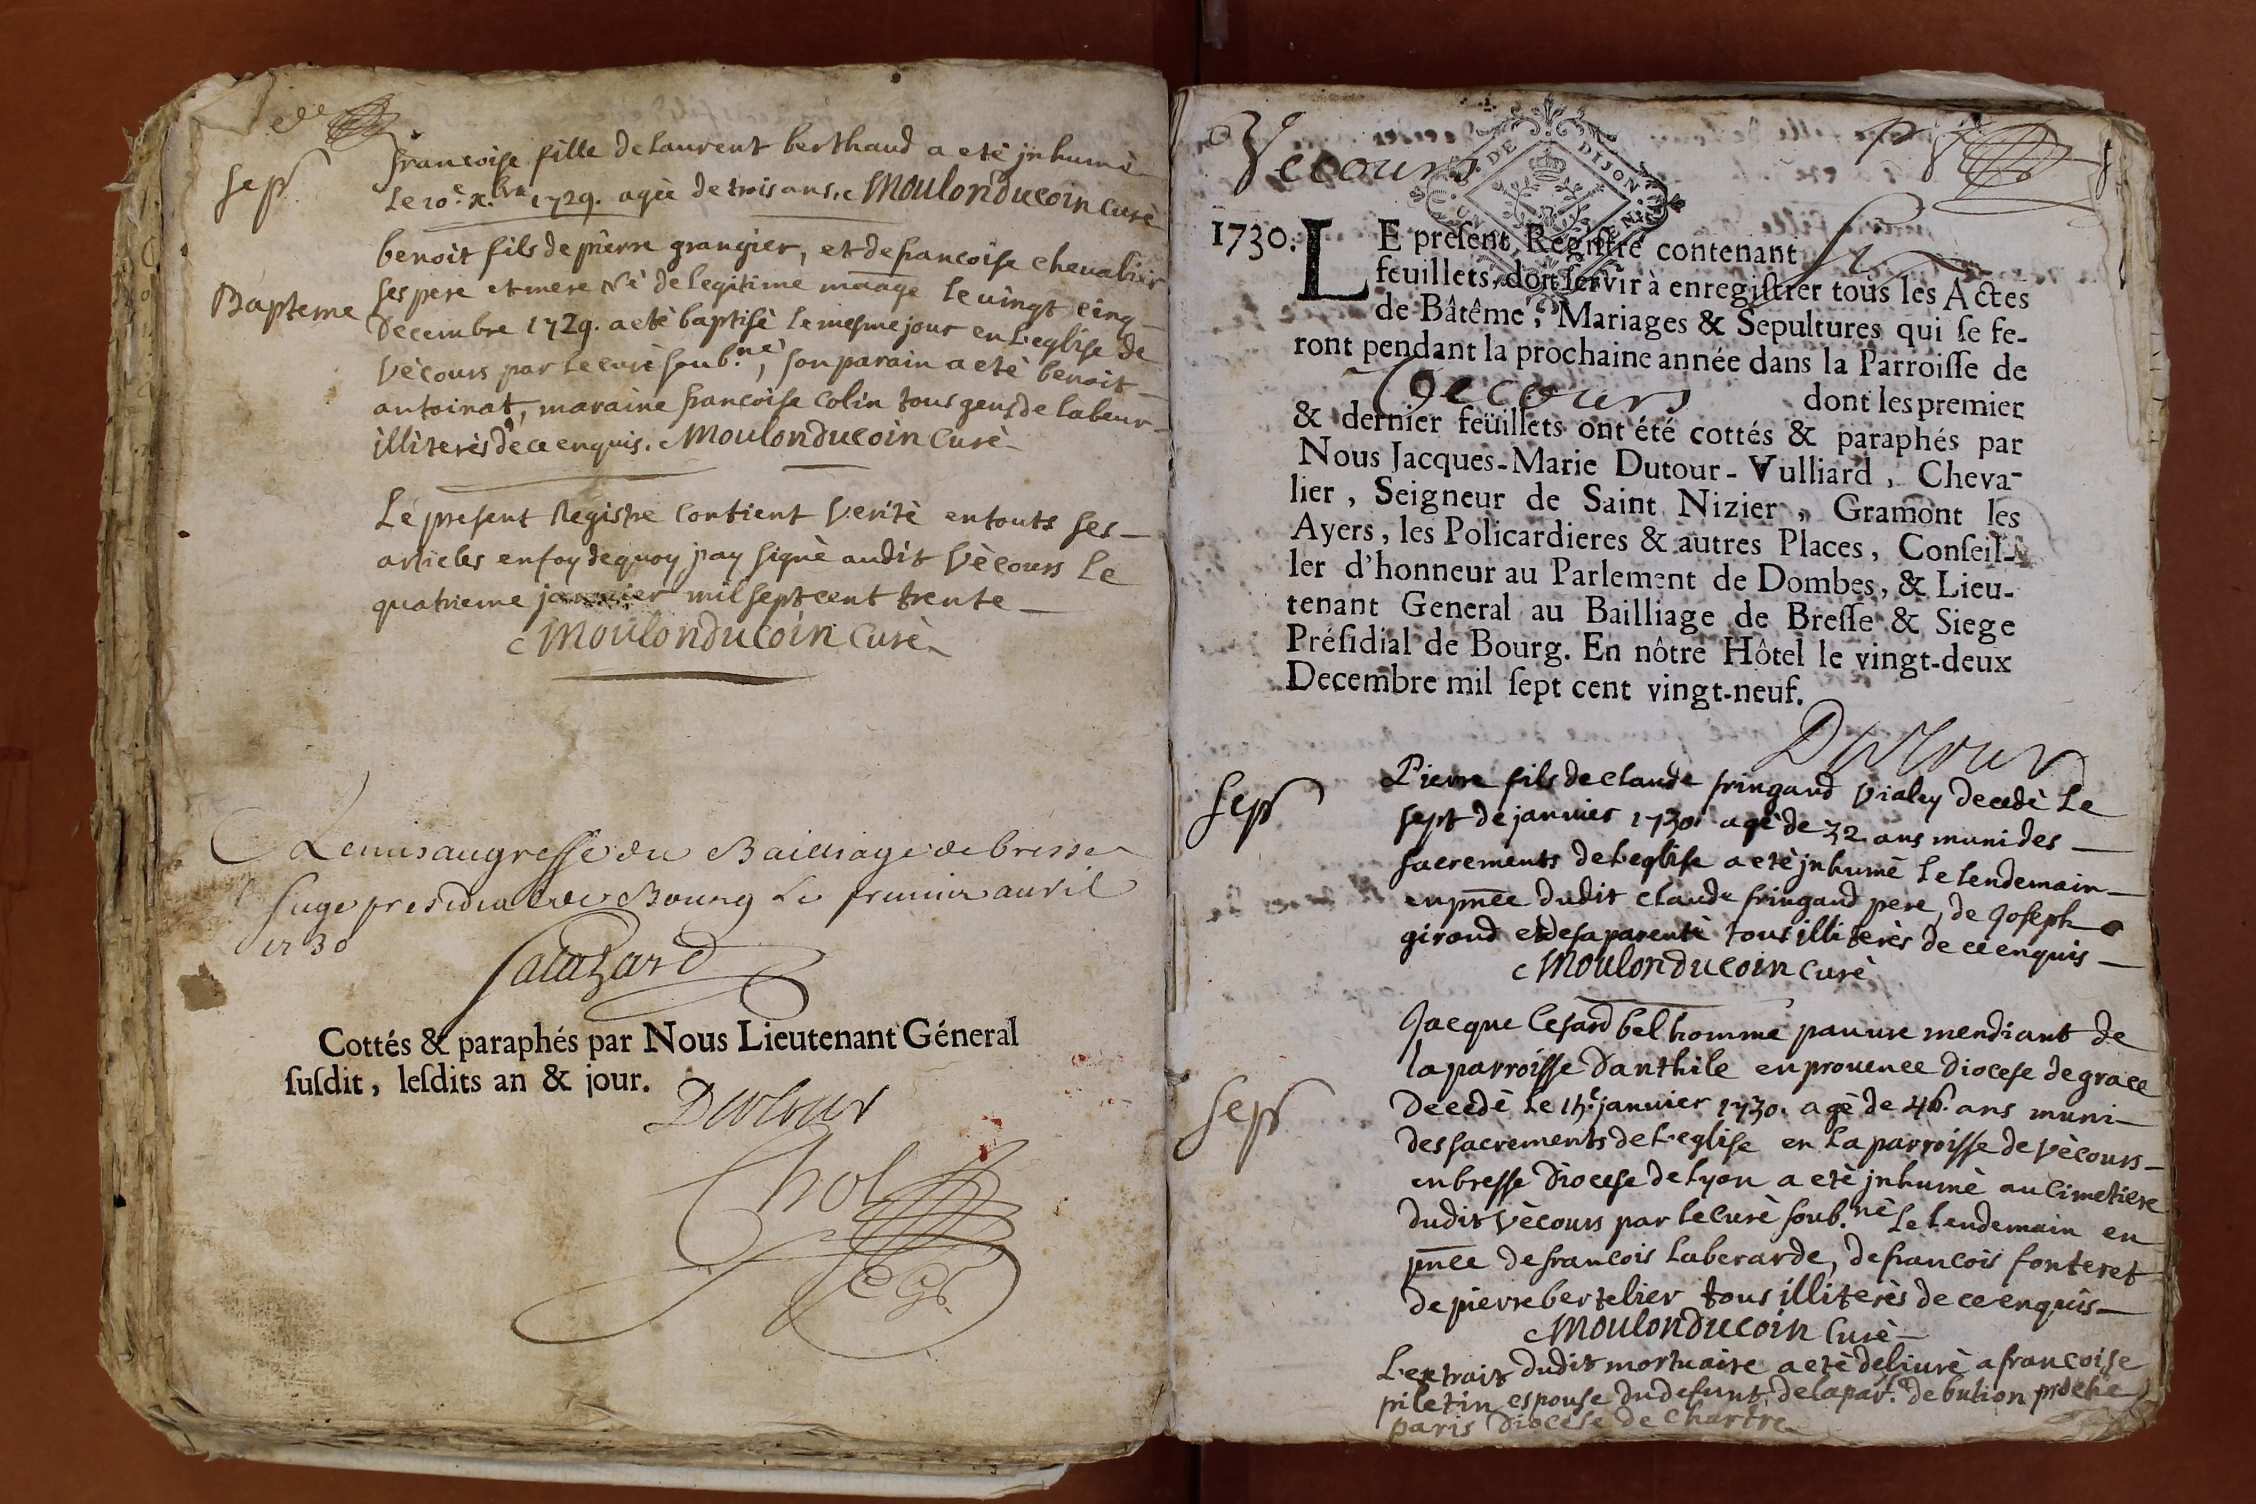 Sep.
francoise fille de laurent berthaud a eté jnhumé
le 10.e x.bre 1729. agée de trois ans. Moulonducoin curé
Bapteme
benoit fils de pierre grangier, et de francoise chevalier
ses pere et mere né de legitime maage le vingt cinq
Decembre 1729. a eté baptisé le mesme jour en l'eglise de
Vécours par le curé soub.né, son parain a eté benoit
antoinat, maraine francoise Colin tous gens de labeur
illiterés de ce enquis. Moulonducoin Curé
Le present Registre Contient verité en touts ses
articles en foy de quoy jay signé audit Vécours Le
quatrieme janvier mil sept cent trente
Moulonducoin Curé
Remis au greffe du Bailliage de bresse
siege presidial de Bourg le premier avril
1730
Cottés & paraphés par Nous Lieutenant Géneral
susdit, lesdits an & jour.
Dutour
Chol
Vecours
DE DIJON
1730.
LE present Registre contenant
feuillets, doit servir à enregistrer tous les Actes
de Bâtême, Mariages & Sepultures qui se fe-
ront pendant la prochaine année dans la Parroisse de
Vecours dont les premier
& dernier feüillets ont été cottés & paraphés par
Nous Jacques-Marie Dutour-Vulliard, Cheva-
lier, Seigneur de Saint Nizier, Gramont les
Ayers, les Policardieres & autres Places, Conseil-
ler d'honneur au Parlement de Dombes, & Lieu-
tenant General au Bailliage de Bresse & Siege
Présidial de Bourg. En nôtre Hôtel le vingt-deux
Decembre mil sept cent vingt-neuf.
Dutour
Sep.
Pierre fils de Claude fringand Vialey decedé Le
sept de janvier 1730. agé de 32 ans muni des
sacrements de l'eglise a eté jnhumé le lendemain
en pnce dudit Claude fringand pere, de Joseph
giroud et de sa parenté tous illiterés de ce enquis
Moulonducoin curé
Sep.
Jacque Cesard bel homme pauvre mendiant de
la parroisse Danthile en provence Diocese de grace
Decedé le 15.e janvier 1730. agé de 46. ans muni
des sacrements de l'eglise en la parroisse de Vécours
en bresse Diocese de Lyon a eté jnhumé au Cimetiere
dudit Vécours par le Curé soub.né le lendemain en
pnce de francois Laberarde, de francois fonteret
de pierre bertelier tous illiterés de ce enquis
Moulonducoin Curé
L'extrait dudit mortuaire a eté delivré a francoise
piletin espouse du defunt de la par. de bulion proche
paris Diocese de Chartre